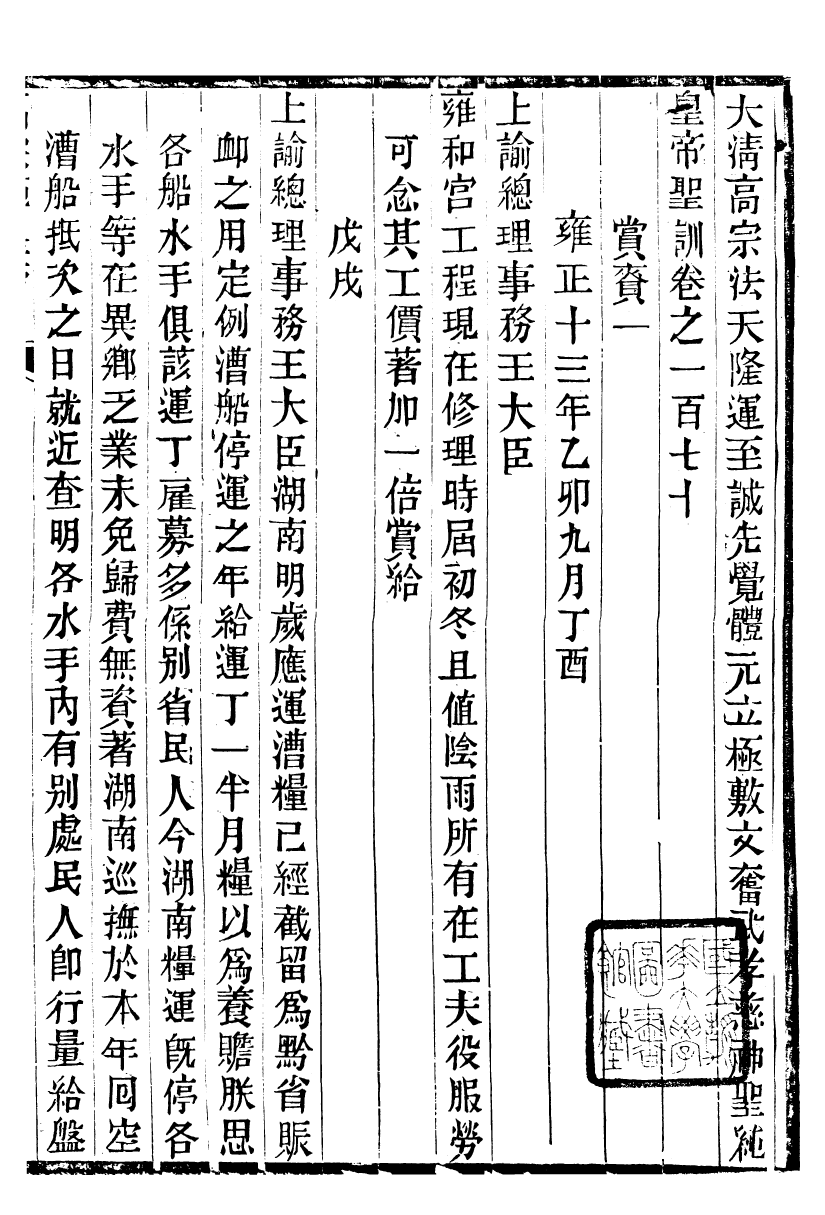 大清高宗法天隆運至誠先覺體元立極敷文奮武孝慈神聖純
皇帝聖訓卷之一百七十
賞賚一
雍正十三年乙卯九月丁酉
上諭總理事務王大臣
雍和宮工程現在修理時屆初冬且值陰雨所有在工夫役服勞
可念其工價著加一倍賞給
戊戌
上諭總理事務王大臣湖南明歲應運漕糧已經截留爲黔省賑
卹之用定例漕船停運之年給運丁一半月糧以爲養贍朕思
各船水手俱該運丁雇募多係別省民人今湖南糧運既停各
水手等在異鄉乏業未免歸費無資著湖南巡撫於本年回空
漕船抵次之日就近查明各水手內有別處民人卽行量給盤
國立清華大學圖書館藏